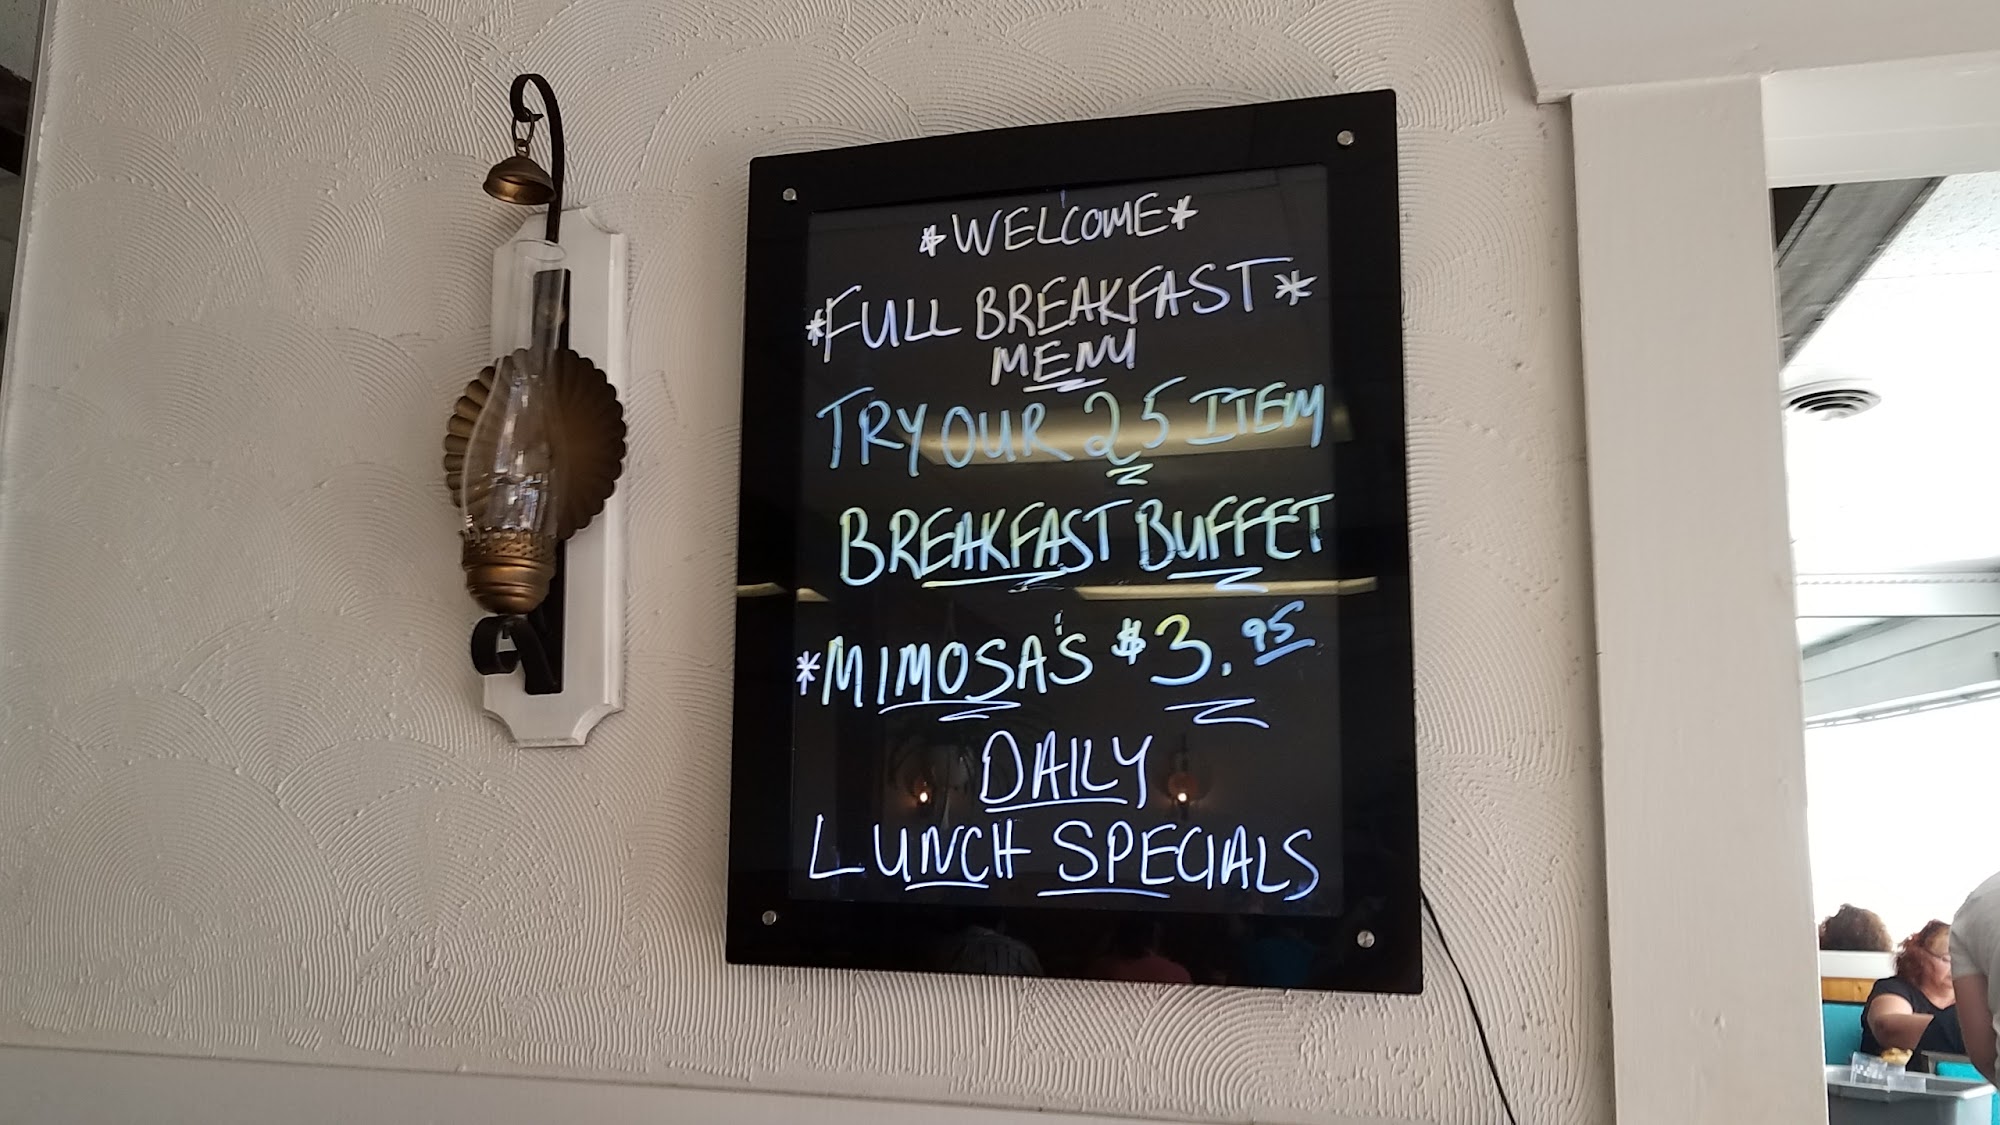 *WELCOME*
*FULL BREAKFAST*
MENU
TRY OUR 25 ITEM
BREAKFAST BUFFET
*MIMOSA'S $3.95
DAILY
LUNCH SPECIALS